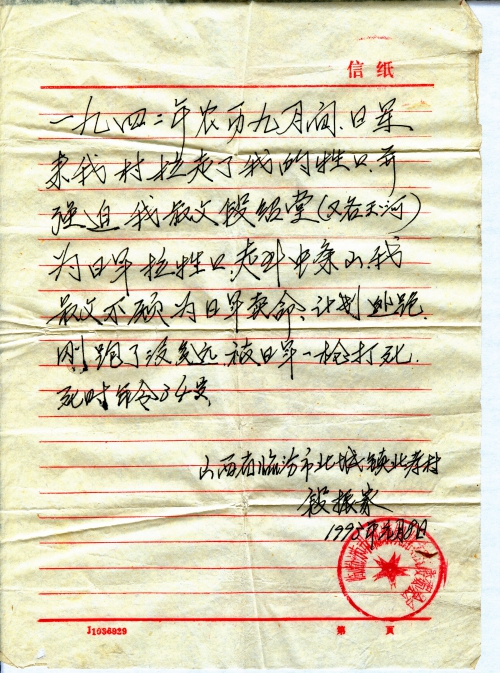 信纸
一九四二年农历九月间、日军
来我村拉走了我的牲口、并
强迫我叔父段绍堂(又名天河)
为日军拉牲口、走到中条山、我
叔父不愿为日军卖命、计划外跑、
刚跑了没多远、被日军一枪打死、
死时年令34岁、
山西省临汾市北城镇北孝村
段振家
1995年 月 日
J1036929
第 页